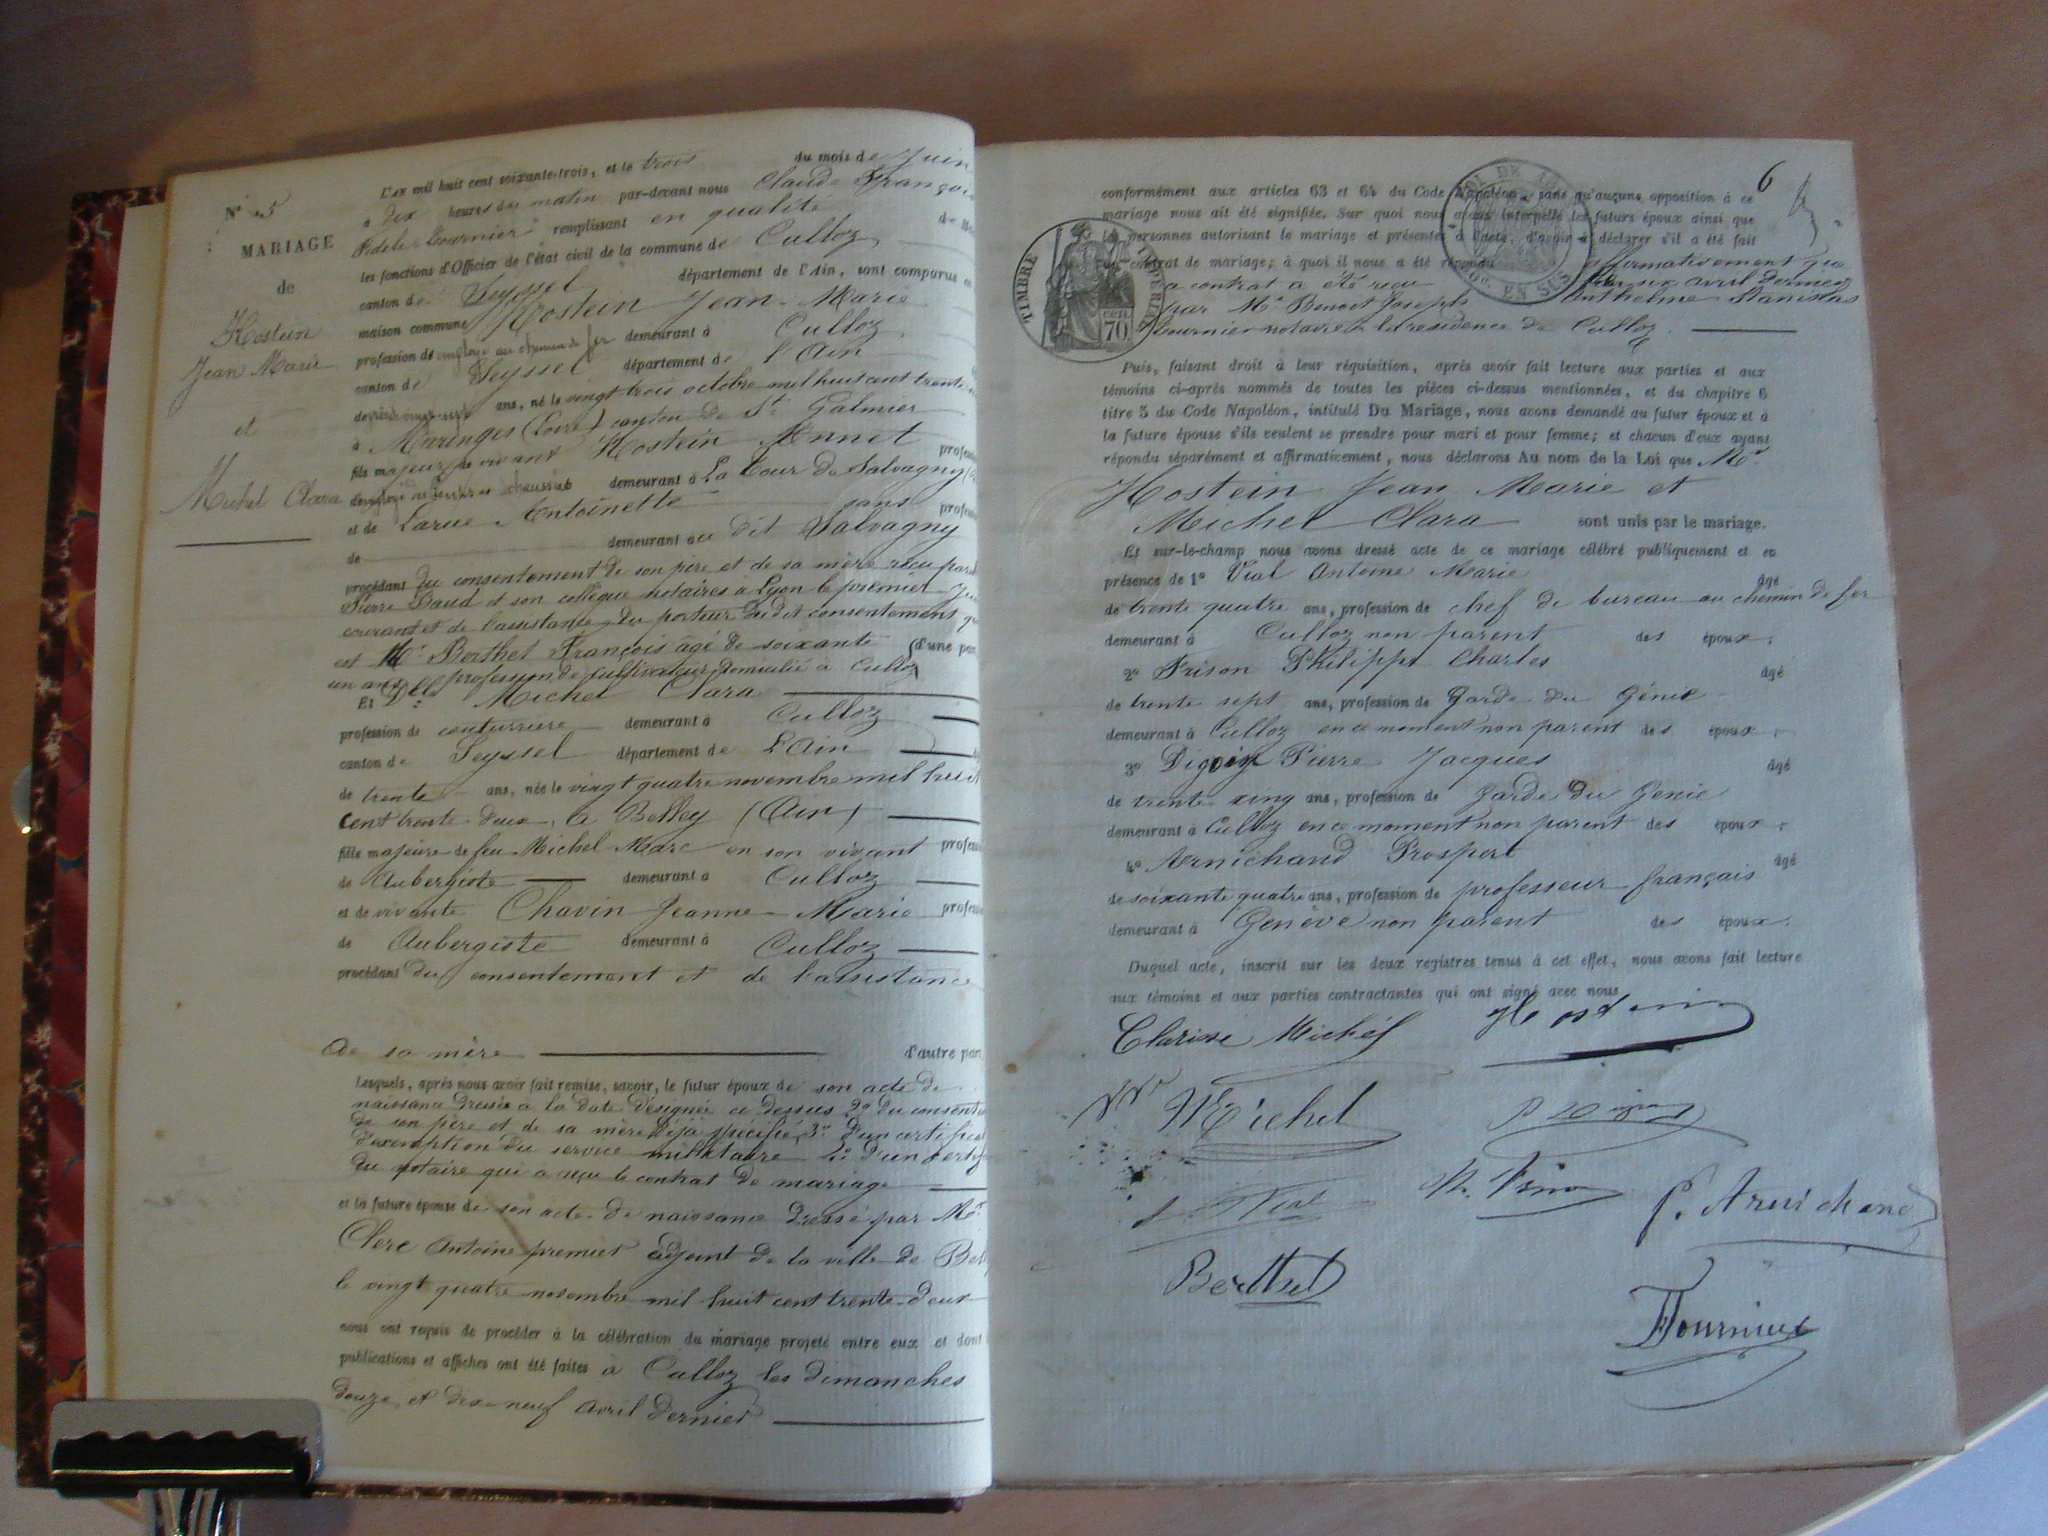 N° 5
MARIAGE
de
Hostein
Jean Marie
et
Michel Clara
L'AN mil huit cent soixante-trois, et le trois du mois de Juin
à dix heures du matin par-devant nous Claude François
Fidele Fournier remplissant en qualité de
les fonctions d'Officier de l'état civil de la commune de Culloz,
canton de Seyssel département de l'Ain, sont comparus en
maison commune Hostein Jean-Marie
profession de employé au chemin de fer demeurant à Culloz
canton de Seyssel département de l'Ain
de ans, né le vingt-trois octobre mil huit cent trente
à Maringes (Loire) canton de St Galmier
fils majeur de vivant Hostein Monnet
demeurant à La Tour de Salvagny
et de Larue Antoinette sans
de demeurant au dit Salvagny
procédant du consentement de son père et de sa mère reçu par
Pierre Daud et son collègue notaires à Lyon le premier
courant et de l'assistance du porteur du dit consentement
est Mr Berthet François âgé de soixante d'une
un ans profession de cultivateur domicilié à Culloz
Et Dlle Michel Clara
profession de couturrière demeurant à Culloz
canton de Seyssel département de L'Ain
de trente ans, née le vingt quatre novembre mil huit
cent trente deux, à Belley (Ain)
fille majeure de feu Michel Marc en son vivant
de Aubergiste demeurant à Culloz
et de vivante Chavin Jeanne-Marie
de Aubergiste demeurant à Culloz
procédant du consentement et de l'assistance
de sa mère d'autre part,
Lesquels, après nous avoir fait remise, savoir, le futur époux de son acte de
naissance dressé à la date désignée ci dessus 2° du
de son père et de sa mère déjà spécifié, 3° d'un
d'exemption du service militaire 4° d'un
du notaire qui a reçu le contrat de mariage
et la future épouse de son acte de naissance dressé par Mr
Clerc Antoine premier adjoint de la ville de
le vingt quatre novembre mil huit cent trente-deux
nous ont requis de procéder à la célébration du mariage projeté entre eux et dont
publications et affiches ont été faites à Culloz les dimanches
douze et dix-neuf avril dernier
6
TIMBRE IMPÉRIAL
70 CEN.
EN SUS
conformément aux articles 63 et 64 du Code Napoléon, sans qu'aucune opposition à ce
mariage nous ait été signifiée. Sur quoi nous avons interpellé les futurs époux ainsi que
les personnes autorisant le mariage et présentes à l'acte, d'avoir à déclarer s'il a été fait
un contrat de mariage; à quoi il nous a été répondu affirmativement que
ce contrat a été reçu le avril dernier
par Mr Benoit Joseph Anthelme Stanislas
Fournier notaire à la résidence de Culloz.
Puis, faisant droit à leur réquisition, après avoir fait lecture aux parties et aux
témoins ci-après nommés de toutes les pièces ci-dessus mentionnées, et du chapitre 6
titre 5 du Code Napoléon, intitulé Du Mariage, nous avons demandé au futur époux et à
la future épouse s'ils veulent se prendre pour mari et pour femme; et chacun d'eux ayant
répondu séparément et affirmativement, nous déclarons Au nom de la Loi que Mr
Hostein Jean Marie et
Michel Clara sont unis par le mariage.
Et sur-le-champ nous avons dressé acte de ce mariage célébré publiquement et en
présence de 1° Vial Antoine Marie âgé
de trente quatre ans, profession de chef de bureau au chemin de fer
demeurant à Culloz non parent des époux;
2° Frison Philippe Charles âgé
de trente sept ans, profession de Garde du Génie
demeurant à Culloz en ce moment non parent des époux;
3° Digoix Pierre Jacques âgé
de trente cinq ans, profession de Garde du Génie
demeurant à Culloz en ce moment non parent des époux;
4° Arnichand Prosper âgé
de soixante quatre ans, profession de professeur français
demeurant à Genève non parent des époux.
Duquel acte, inscrit sur les deux registres tenus à cet effet, nous avons fait lecture
aux témoins et aux parties contractantes qui ont signé avec nous
Clarisse Michel Hostein
Vve Michel
Vial P. Arnichand
Berthet
Fournier